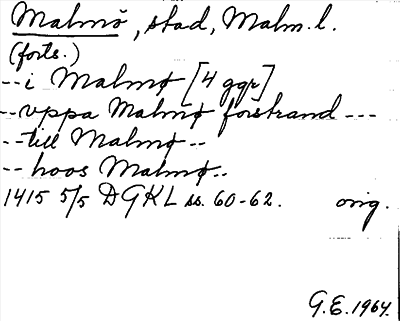 Malmö, stad, Malm. l.
(forts.)
-- i Malmø [4 ggr]
-- vppa Malmø forstrand ---
-- till Malmø --
-- hoos Malmø --
1415 5/5 DGKL ss. 60-62. orig.
G.E. 1964.